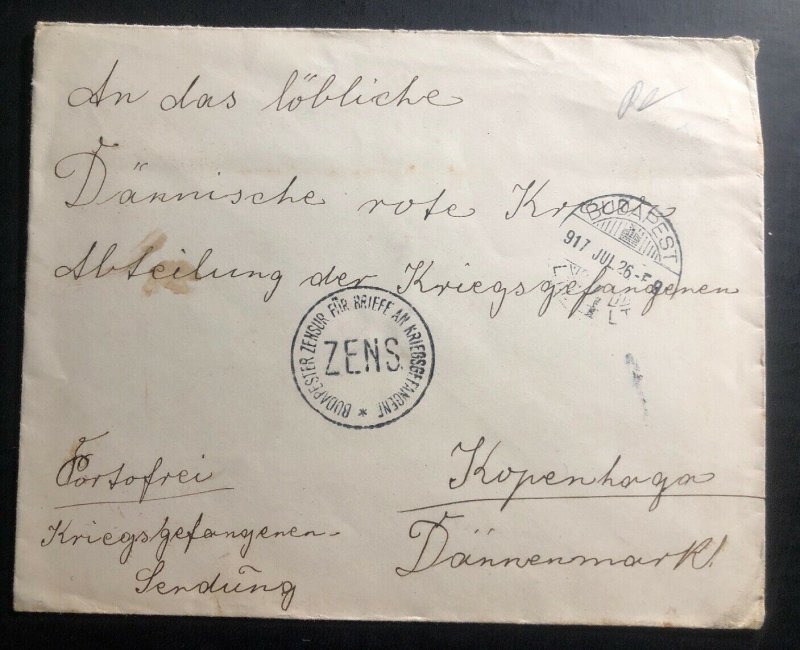 An das löbliche
Dännische rote Kreuz
Abteilung der Kriegsgefangenen
BUDAPEST
917 JUL 26
BUDAPESTER ZENSUR FÜR BRIEFE AN KRIEGSGEFANGENE *
ZENS.
Portofrei
Kriegsgefangenen-
Sendung
Kopenhaga
Dännenmark!